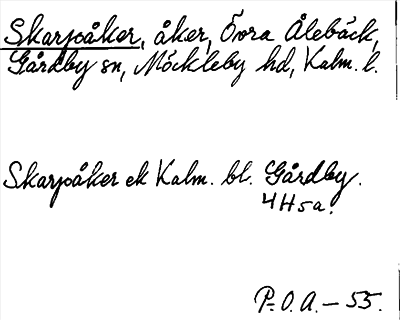 Skarpåker, åker, Övra Ålebäck,
Gårdby sn, Möckleby hd, Kalm. l.
Skarpåker ek Kalm. bl. Gårdby.
4H5a.
P.O.A. – 55.